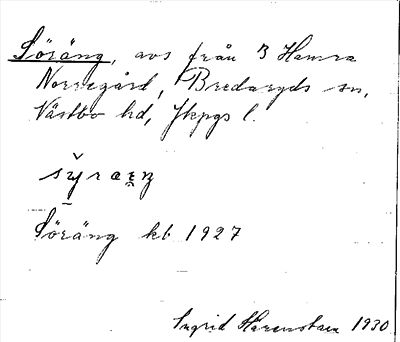 Söräng, avs från 3 Hamra
Norregård, Bredaryds sn,
Västbo hd, Jkpgs l.
Söräng kb 1927
Ingrid 1930